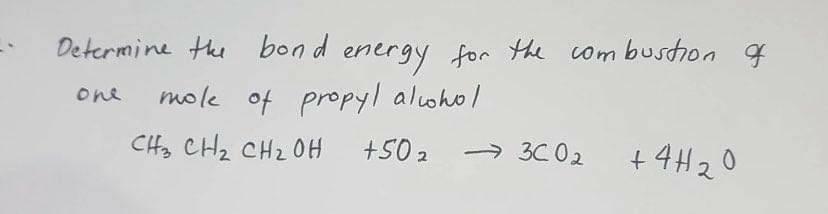 Determine the bond energy for the combustion of
one mole of propyl alcohol
CH₃ CH₂ CH₂ OH +5O₂ → 3CO₂ + 4H₂O